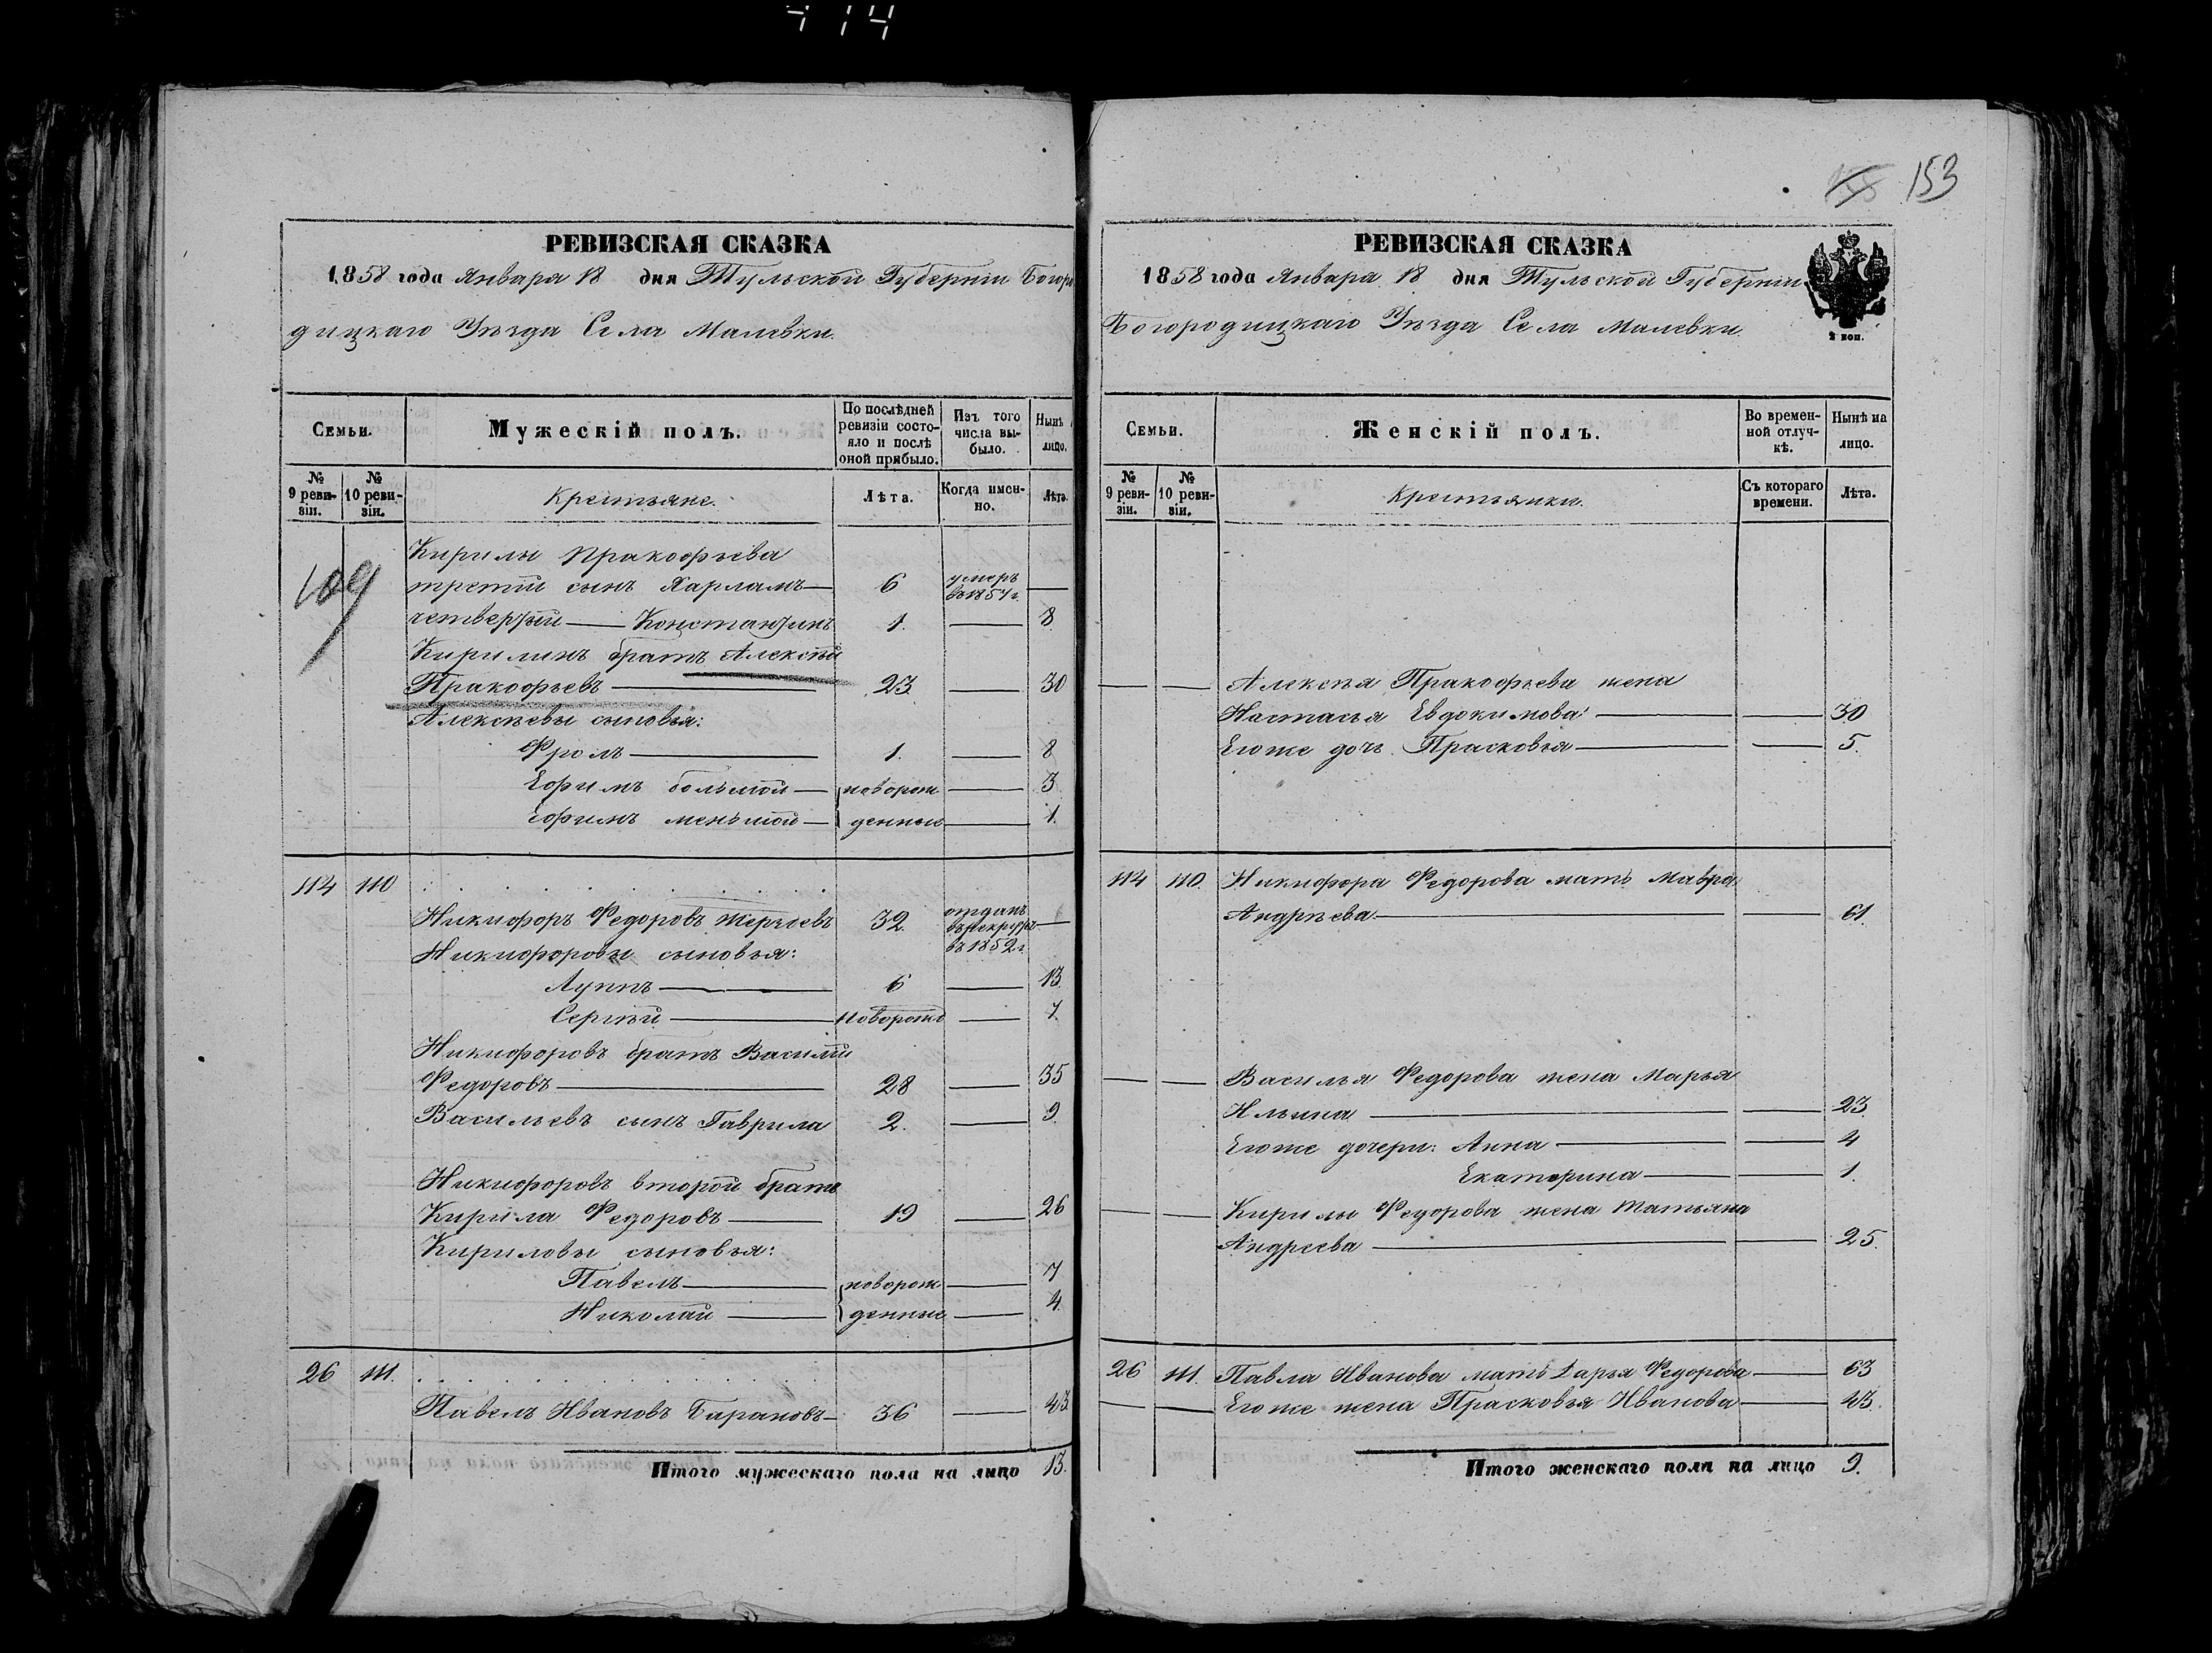 153
РЕВИЗСКАЯ СКАЗКА
1858 года Января 18 дня Тульской Губерніи Богоро
дицкаго Уѣзда Села Малевки.
Семьи.
Мужескій полъ.
По послѣдней ревизіи состояло и послѣ оной прибыло.
Изъ того числа выбыло.
Нынѣ лицо.
№ 9 ревизіи.
№ 10 ревизіи.
Крестьяне.
Лѣта.
Когда именно.
Лѣта
109
Кирилы Пракофьева
третій сынъ Харламъ 6 умеръ въ 1857 г.
четвертый Константинъ 1. 8
Кирилинъ братъ Алексѣй
Пракофьевъ 23 30
Алексѣевы сыновья:
Фролъ 1. 8
Ефимъ большой новорож 3
Ефимъ меньшой денные 1.
114 110
Никифоръ Федоровъ 32. отданъ въ рекруты въ 1852 г.
Никифоровы сыновья:
Луппъ 6 13.
Сергѣй новорожд 7.
Никифоровъ братъ Василій
Федоровъ 28 35
Васильевъ сынъ Гаврила 2. 9
Никифоровъ второй братъ
Кирила Федоровъ 19 26
Кириловы сыновья:
Павелъ новорож 7
Николай денные 4.
26 111.
Павелъ Ивановъ Барановъ 36 43
Итого мужескаго пола на лицо 13.
РЕВИЗСКАЯ СКАЗКА
1858 года Января 18 дня Тульской Губерніи
Богородицкаго Уѣзда Села Малевки.
2 коп.
Семьи.
Женскій полъ.
Во временной отлучкѣ.
Нынѣ на лицо.
№ 9 ревизіи.
№ 10 ревизіи.
Крестьянки.
Съ котораго времени.
Лѣта.
Алексѣя Пракофьева жена
Настасья Евдокимова 30
Егоже дочь Прасковья 5.
114 110. Никифора Федорова мать Мавра
Андрѣева 61.
Василья Федорова жена Марья
Ильина 23
Егоже дочери: Анна 4
Екатерина 1.
Кирилы Федорова жена Татьяна
Андреева 25.
26 111. Павла Иванова мать Дарья Федорова 63
Егоже жена Прасковья Иванова 43.
Итого женскаго пола на лицо 9.